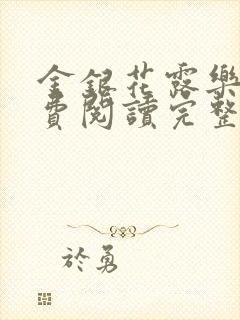 金銀花露樂
費閱讀完整
於勇